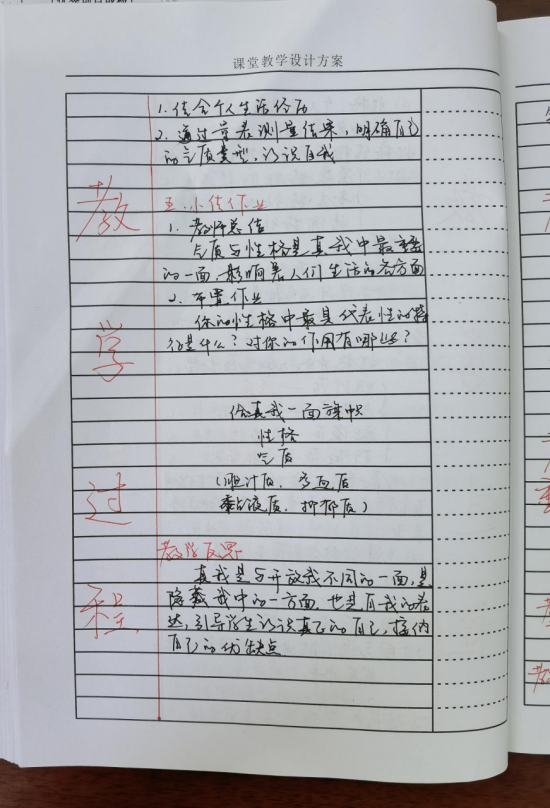 课堂教学设计方案
1. 结合个人生活经历
2. 通过量表测量结果，明确自己
的气质类型，认识自我
教
五. 小结作业
1. 教师总结
气质与性格是真我中最重要
的一面，影响着人们生活的各方面
2. 布置作业
你的性格中最具代表性的特
征是什么？对你的作用有哪些？
学
给真我一面旗帜
性格
气质
（胆汁质、多血质
黏液质、抑郁质）
过
教学反思
真我是与开放我不同的一面，是
隐藏我中的一方面，也是自我的表
达，引导学生认识真正的自己，接纳
自己的优缺点
程